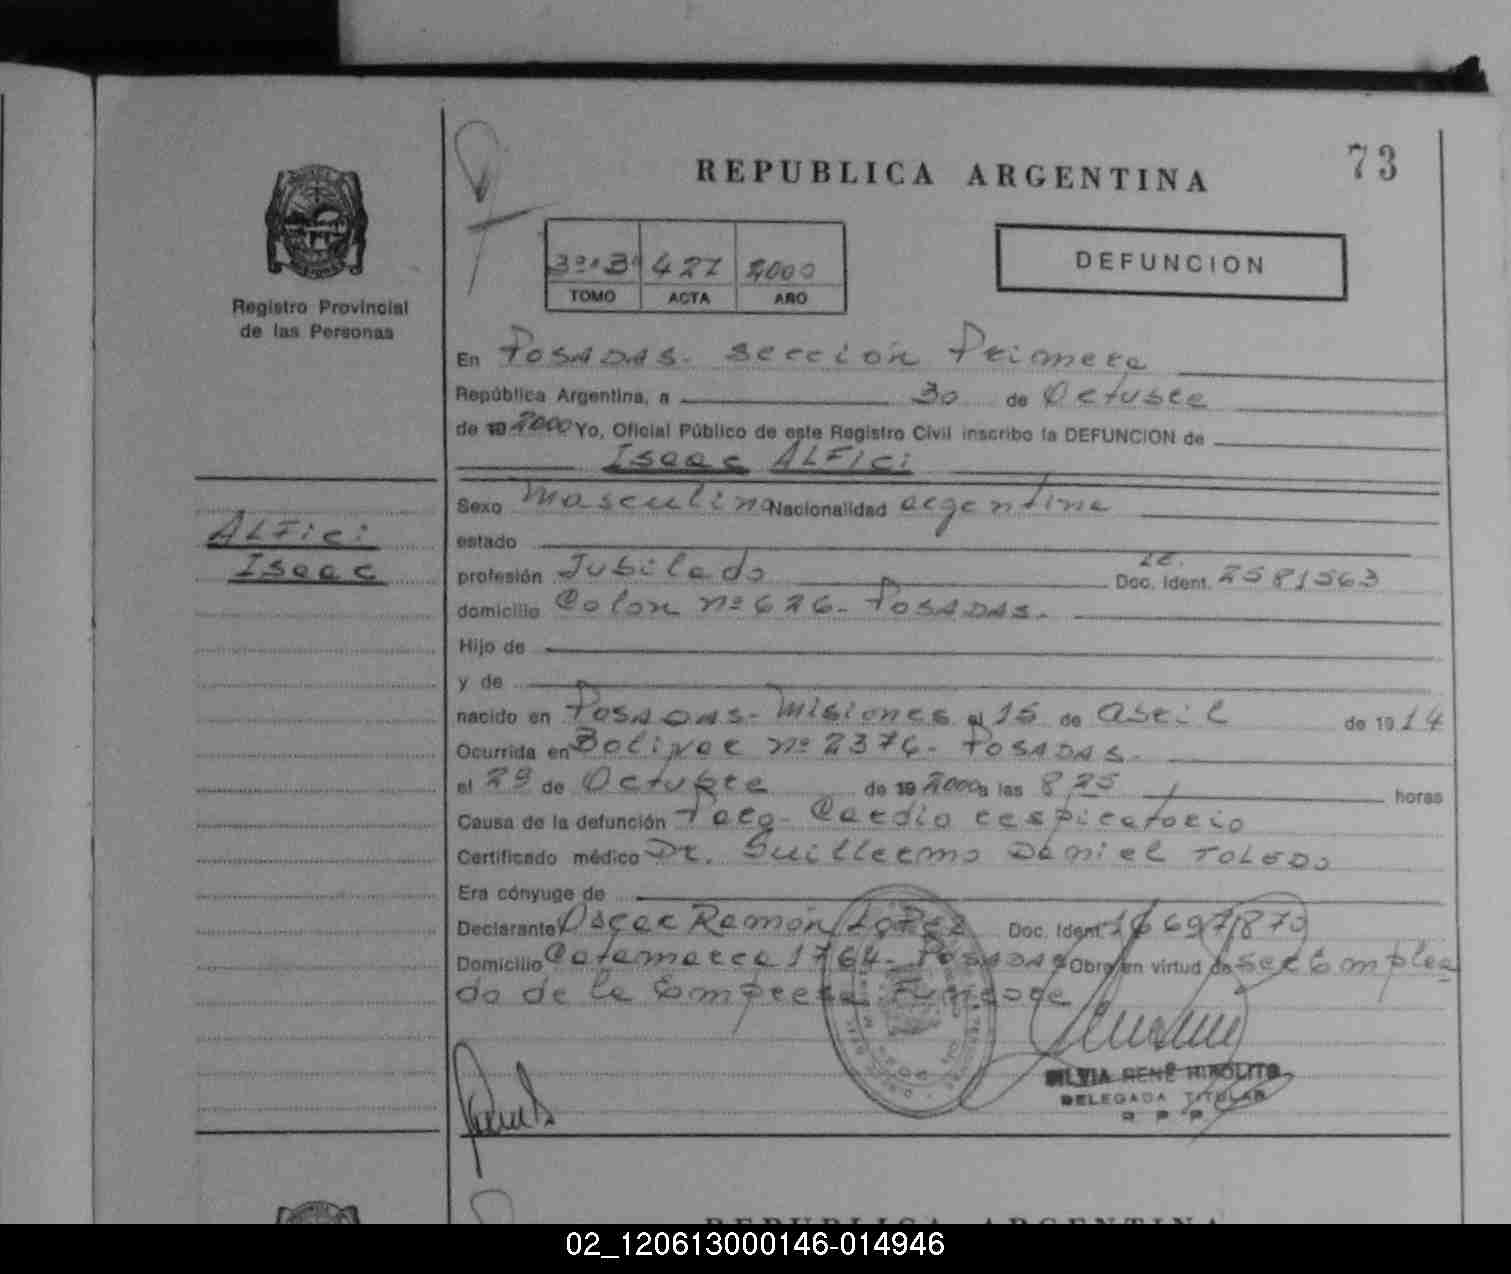 73
REPUBLICA ARGENTINA
DEFUNCION
Registro Provincial
de las Personas
3º "B" 427 2000
TOMO ACTA AÑO
En Posadas. Sección Primera
República Argentina, a 30 de Octubre
de 19 2000 Yo, Oficial Público de este Registro Civil inscribo la DEFUNCION de
Isaac ALFici
ALFici
Isaac
Sexo Masculino Nacionalidad argentina
estado
profesión Jubilado Doc. Ident. LE. 2581563
domicilio Colon nº 626- Posadas.
Hijo de
y de
nacido en Posadas- Misiones el 15 de Abril de 1914
Ocurrida en Bolivar nº 2376- Posadas.
el 29 de Octubre de 19 2000 a las 8 25 horas
Causa de la defunción Paro- Cardio respiratorio
Certificado médico Dr. Guillermo Daniel TOLEDO
Era cónyuge de
Declarante Oscar Ramón López Doc. Ident. 16697870
Domicilio Catamarca 1764- Posadas Obra en virtud de ser Emplea
do de la Empresa Funebre
SILVIA RENE HIPOLITO
DELEGADA TITULAR
R P P
REPUBLICA ARGENTINA
02_120613000146-014946